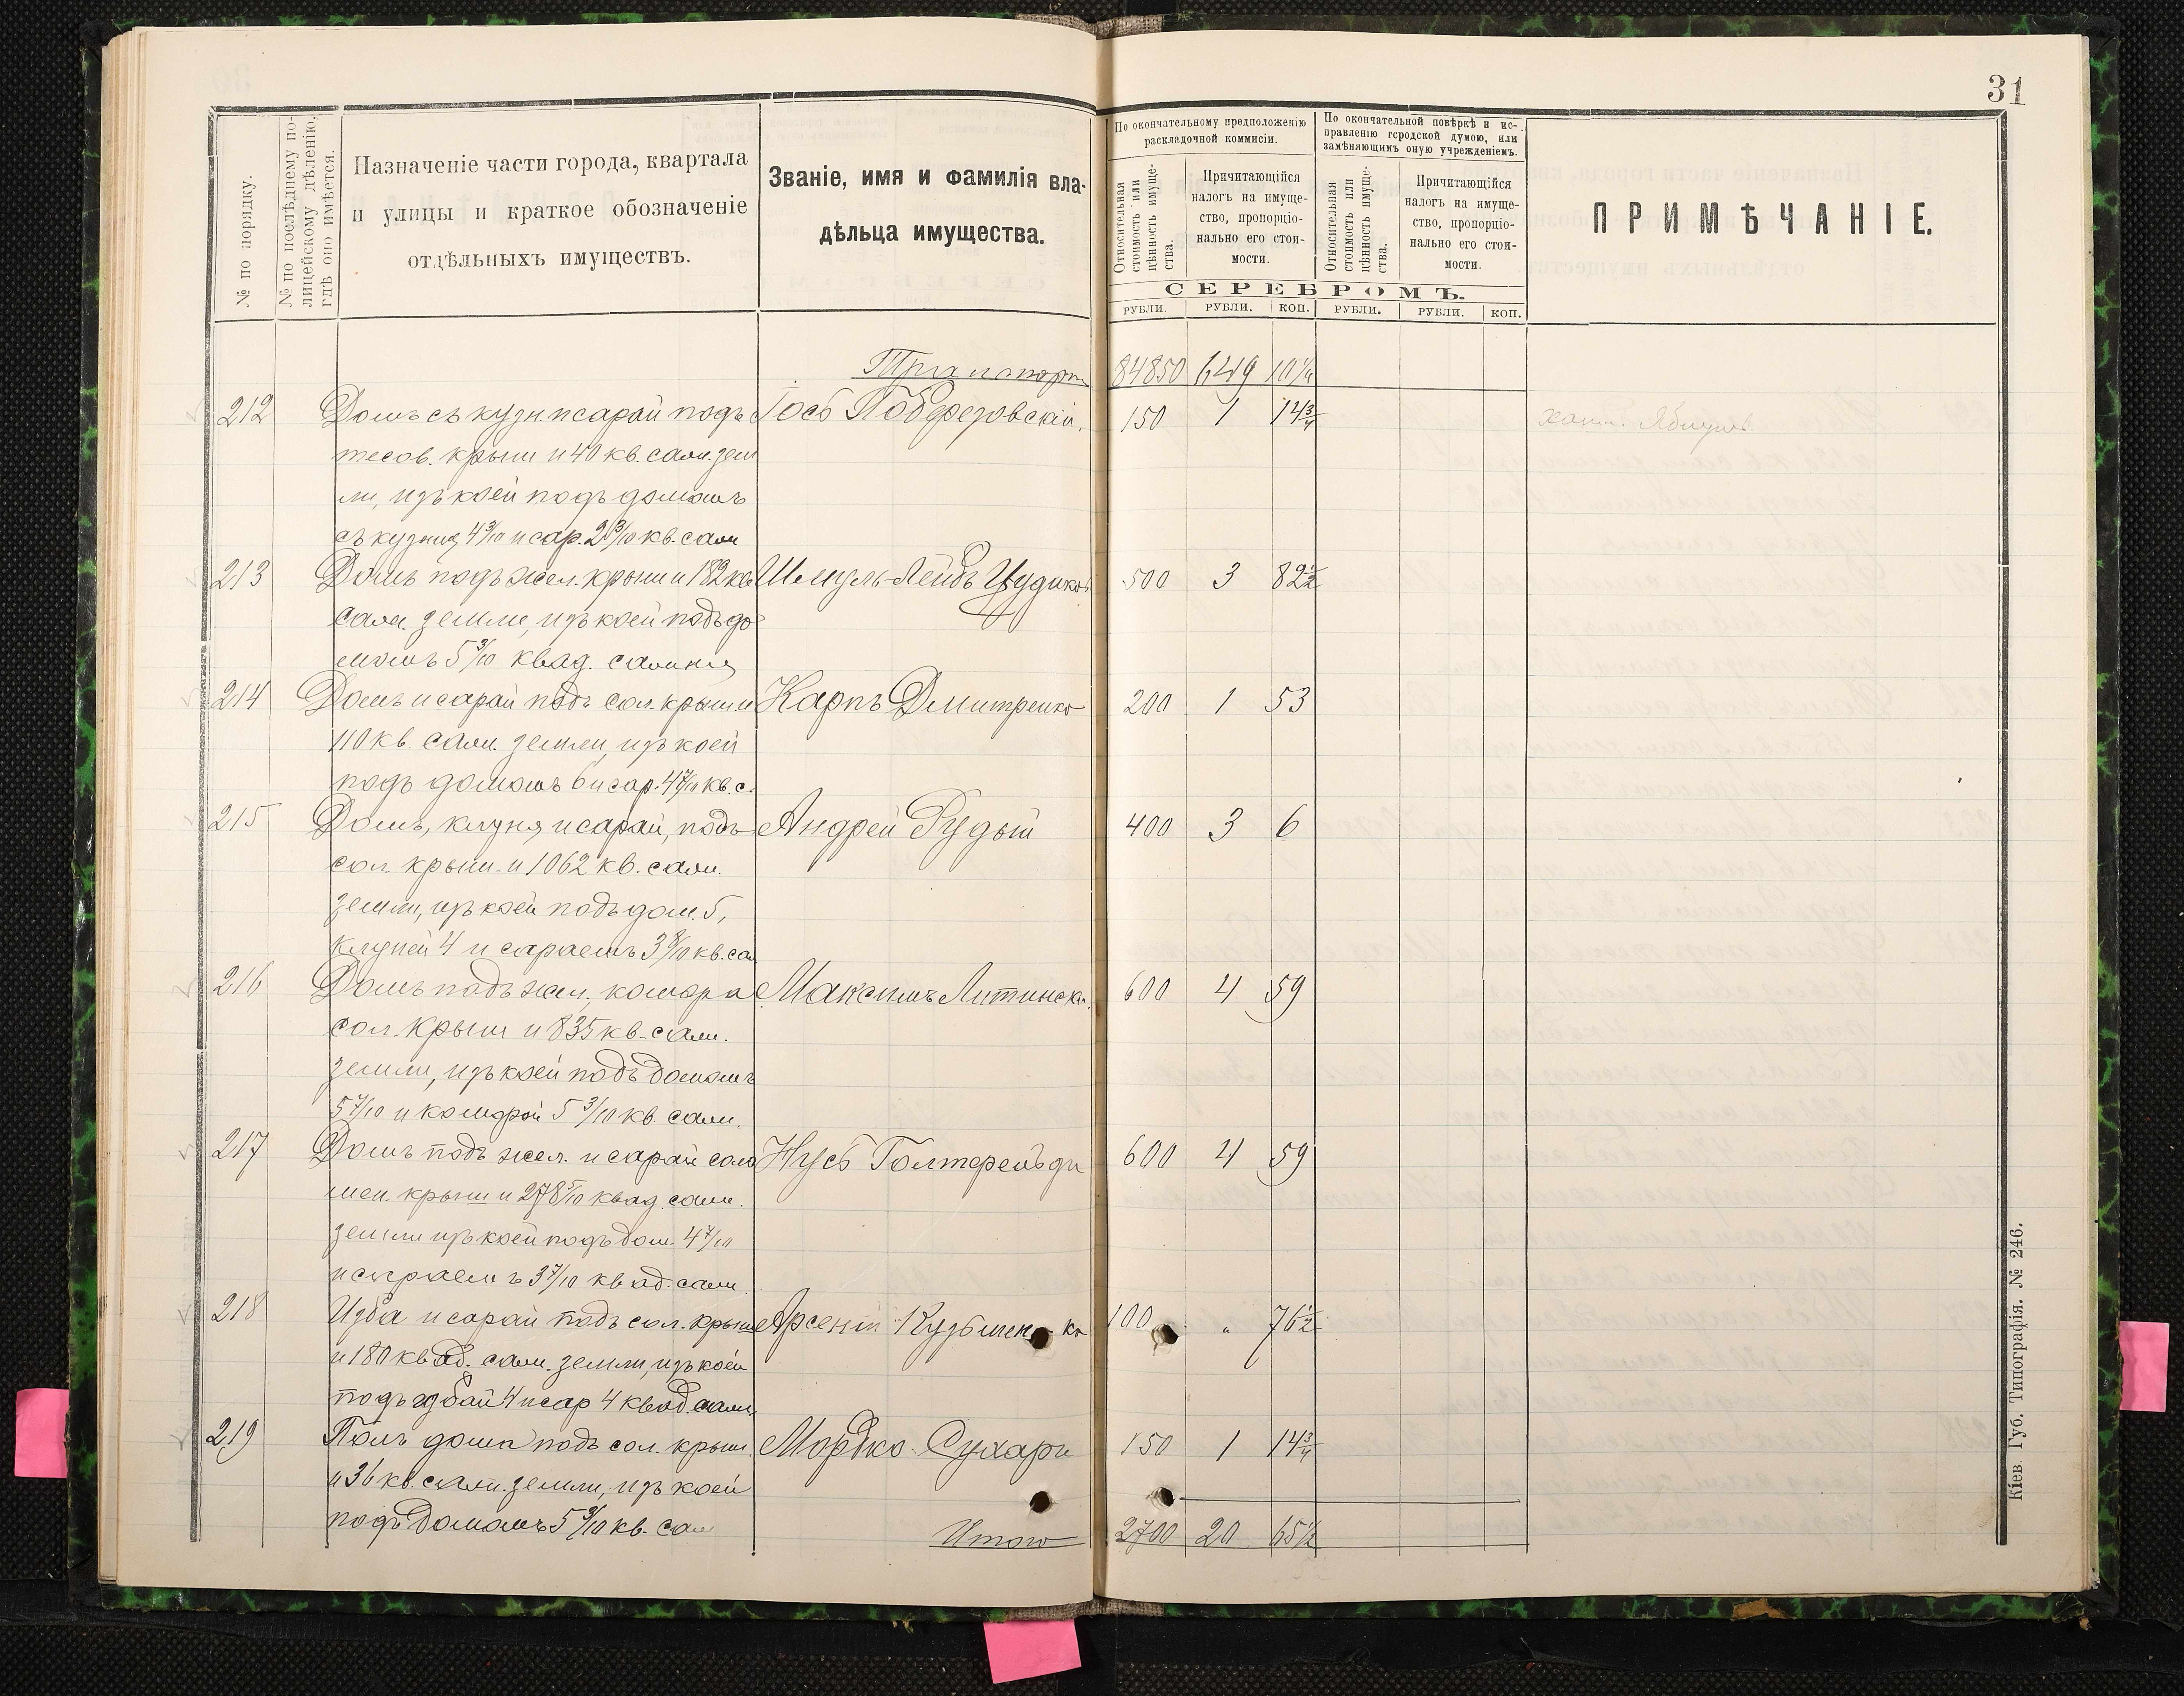 31
№ по порядку.
№ по послѣднему по-
лицейскому дѣленію,
гдѣ оно имѣется.
Назначеніе части города, квартала
и улицы и краткое обозначеніе
отдѣльныхъ имуществъ.
Званіе, имя и фамилія вла-
дѣльца имущества.
По окончательному предположенію
раскладочной коммисіи.
Относительная
стоимость или
цѣнность имуще-
ства.
Причитающійся
налогъ на имуще-
ство, пропорціо-
нально его стои-
мости.
По окончательной повѣркѣ и ис-
правленію городской думою, или
замѣняющимъ оную учрежденіемъ.
Относительная
стоимость или
цѣнность имуще-
ства.
Причитающійся
налогъ на имуще-
ство, пропорціо-
нально его стои-
мости.
СЕРЕБРОМЪ.
РУБЛИ. РУБЛИ. КОП. РУБЛИ. РУБЛИ. КОП.
ПРИМѢЧАНІЕ.
84850 649 10¼
212 Домъ съ кузн. и сарай подъ 150 1 14¾
тесов. крыш и 40 кв. саж. зем
ли, изъ коей подъ домомъ
съ кузниц 4 3/10 и сар. 2 3/10 кв. саж
213 Домъ подъ жел. крыш и 182 кв Шмуль-Лейбъ Цудиков 500 3 82½
саж. земли, изъ коей подъ до
момъ 5 3/10 квад. сажня
214 Домъ и сарай подъ сол. крыш. и Карпъ Дмитренко 200 1 53
110 кв. саж. земли, изъ коей
подъ домомъ 6 и сар. 4 7/10 кв. с.
215 Домъ, клуня и сарай, подъ Андрей Рудый 400 3 6
сол. крыш. и 1062 кв. саж.
земли, изъ коей подъ дом. 5,
клуней 4 и сараемъ 3 8/10 кв. саж
216 Домъ подъ жел. комора Максимъ Литинск. 600 4 59
сол. крыш и 835 кв. саж.
земли, изъ коей подъ домомъ
5 7/10 и коморой 5 3/10 кв. саж.
217 Домъ подъ жел. и сарай соло Нусь 600 4 59
мен. крыш и 278 5/10 квад. саж.
земли изъ коей подъ дом. 4 7/10
и сараемъ 3 7/10 квад. саж.
218 Изба и сарай подъ сол. крыш Арсеній Кузьменко 100 " 76½
и 180 квад. саж. земли, изъ коей
подъ избай 4 и сар 4 квад. саж.
219 Полъ дома подъ сол. крыш Мордко Сухари 150 1 14¾
и 36 кв. саж. земли, изъ коей
подъ домомъ 5 9/10 кв. саж
Итого 2700 20 65½
Кіев. Губ. Типографія. № 246.